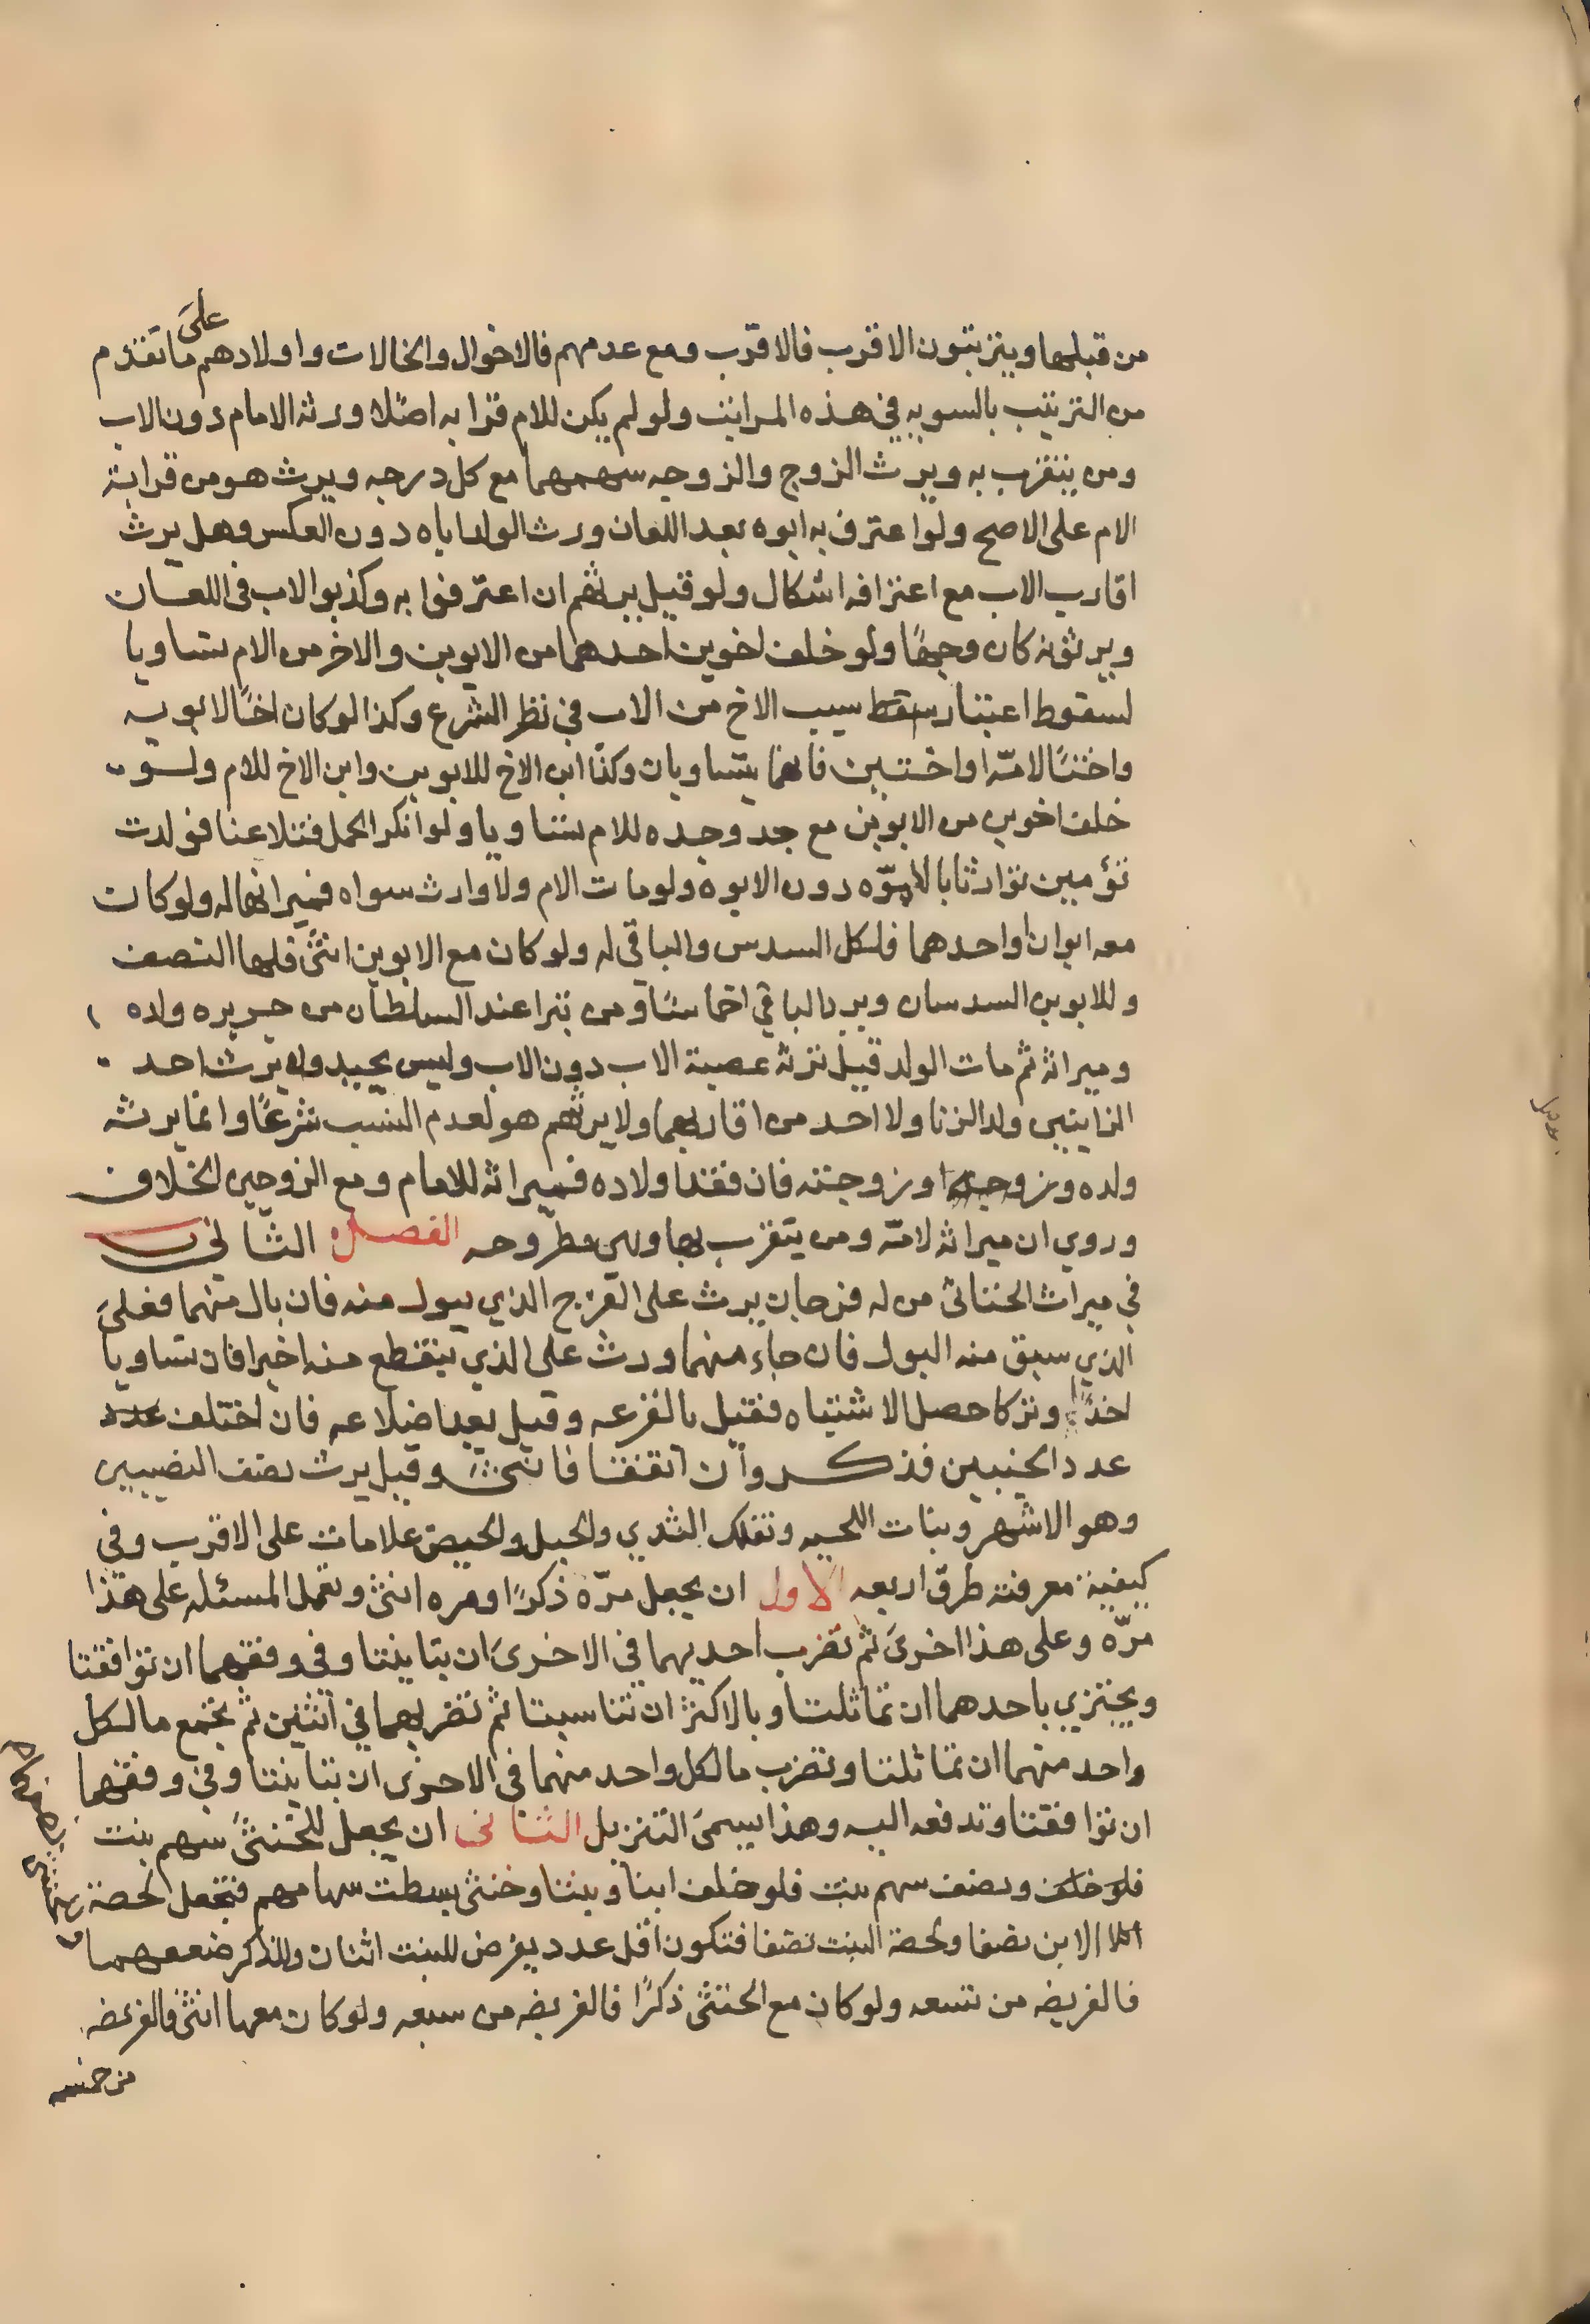 من قبلها ويترتبون الاقرب فالاقرب ومع عدمهم فالاخوال والخالات واولادهم على ما تقدم
من الترتيب بالسويه في هذه المراتب ولو لم يكن للام قرابه اصلا ورثه الامام دون الاب
ومن يتقرب به ويرث الزوج والزوجه سهمهما مع كل درجه ويرث هو من قرابة
الام على الاصح ولو اعترف به ابوه بعد اللعان ورث الولد اباه دون العكس وهل يرث
اقارب الاب مع اعترافه اشكال ولو قيل يرثهم ان اعترفوا به وكذبوا الاب في اللعان
ويرثونه كان وجهًا ولو خلف اخوين احدهما من الابوين والاخر من الام تساويا
لسقوط اعتبار سقط سبب الاخ من الاب في نظر الشرع وكذا لو كان اخًا لابويه
واختًا لامّه او اختين فانهما يتساويان وكذا ابن الاخ للابوين وابن الاخ للام ولو
خلف اخوين من الابوين مع جد وجده للام تساويا ولو انكر الحمل فتلاعنا فولدت
تؤمين توارثا بالامّوه دون الابوه ولو ماتت الام ولا وارث سواه فميراثها له ولو كان
معه ابوان او احدهما فلكل السدس والباقي له ولو كان مع الابوين انثى فلها النصف
وللابوين السدسان ويرد الباقي اخماسًا ومن تبرا عند السلطان من جريره ولده
وميراثه ثم مات الولد قيل ترثه عصبة الاب دون الاب وليس بجيد ولا يرث احد
الزانيين ولد الزنا ولا احد من اقاربهما ولا يرثهم هو لعدم النسب شرعًا وانما يرثه
ولده وزوجها او زوجته فان فقد اولاده فميراثه للامام ومع الزوجين الخلاف
وروي ان ميراثه لامّه ومن يتقرب بها وهى مطروحه الفصل الثانى
في ميراث الخناثى من له فرجان يرث على الفرج الذي يبول منه فان بال منهما فعلى
الذي سبق منه البول فان جاء منهما ورث على الذي ينقطع منه اخيرا فان تساويا
اخذًا وتركا حصل الاشتباه فقيل بالقرعه وقيل بعد اضلاعه فان اختلف عدد
عدد الجنبين فذكر وان اتفقتا فانثى وقيل يرث نصف النصيبين
وهو الاشهر ونبات اللحيه وتفلك الثدي والحبل والحيض علامات على الاقرب وفي
كيفية معرفته طرق اربعه الاول ان يجعل مرّه ذكرًا ومره انثى وتعمل المسئله على هذا
مرّه وعلى هذا اخرى ثم تضرب احديهما في الاخرى ان تباينتا وفي وفقهما ان توافقتا
ويجتزي باحدهما ان تماثلتا وبالاكثر ان تناسبتا ثم تضربهما في اثنين ثم تجمع ما لكل
واحد منهما ان تماثلتا وتضرب ما لكل واحد منهما في الاخرى ان تباينتا وفي وفقهما
ان توافقتا وتدفعه اليه وهذا يسمى التنزيل الثانى ان يجعل للخنثى سهم بنت
فلو خلف ونصف سهم بنت فلو خلف ابنا وبنتا وخنثى بسطت سهامهم فتجعل لحصة
الابن نصفا ولحصة البنت نصفا فتكون اقل عدد يفرض للبنت اثنان وللذكر ضعفهما
فالفريضه من تسعه ولو كان مع الخنثى ذكرًا فالفريضه من سبعه ولو كان معها انثى فالفريضه
من خمسه